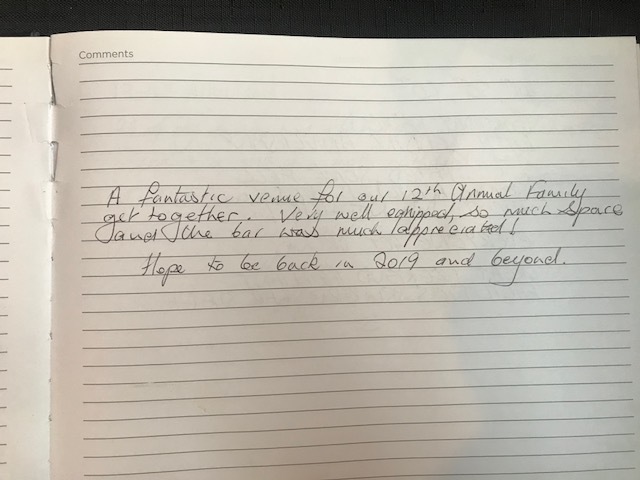 Comments
A fantastic venue for our 12th Annual Family
get together. Very well equipped, so much space
and the bar was much appreciated!
Hope to be back in 2019 and beyond.